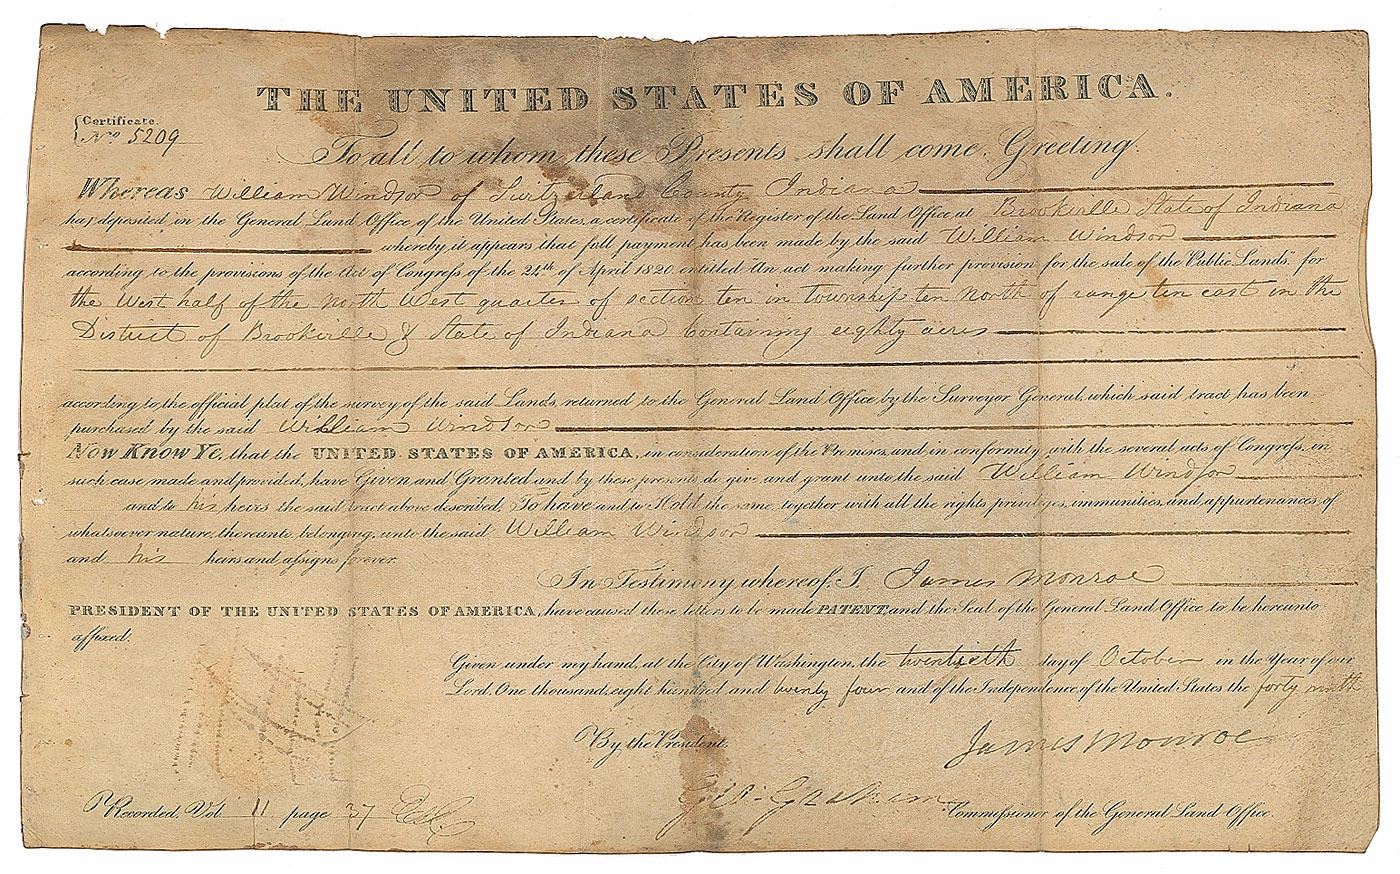 THE UNITED STATES OF AMERICA.
Certificate.
No 5209
To all to whom these Presents shall come, Greeting.
Whereas William Windsor of Switzerland County Indiana
has deposited in the General Land Office of the United States, a certificate of the Register of the Land Office at Brookville State of Indiana
whereby it appears that full payment has been made by the said William Windsor
according to the provisions of the Act of Congress of the 24th of April 1820 entitled "An act making further provision for the sale of the Public Lands," for
the West half of the North West quarter of section ten in township ten North of range ten east in the
District of Brookville & State of Indiana Containing eighty acres
according to the official plat of the survey of the said Lands, returned to the General Land Office by the Surveyor General, which said tract has been
purchased by the said William Windsor
Now Know Ye, that the UNITED STATES OF AMERICA, in consideration of the Premises, and in conformity with the several acts of Congress, in
such case made and provided, have Given and Granted and by these presents do give and grant unto the said William Windsor
and to his heirs the said tract above described: To have and to Hold the same, together with all the rights privileges, immunities and appurtenances of
whatsoever nature, thereunto belonging, unto the said William Windsor
and his heirs and assigns forever.
In Testimony whereof, I James Monroe
PRESIDENT OF THE UNITED STATES OF AMERICA, have caused these letters to be made PATENT, and the Seal of the General Land Office to be hereunto
affixed.
Given under my hand, at the City of Washington, the twentieth day of October in the Year of our
Lord, One thousand, eight hundred and twenty four and of the Independence of the United States the forty ninth
By the President, James Monroe
Geo: Graham Commissioner of the General Land Office.
Recorded, Vol 11 page 37